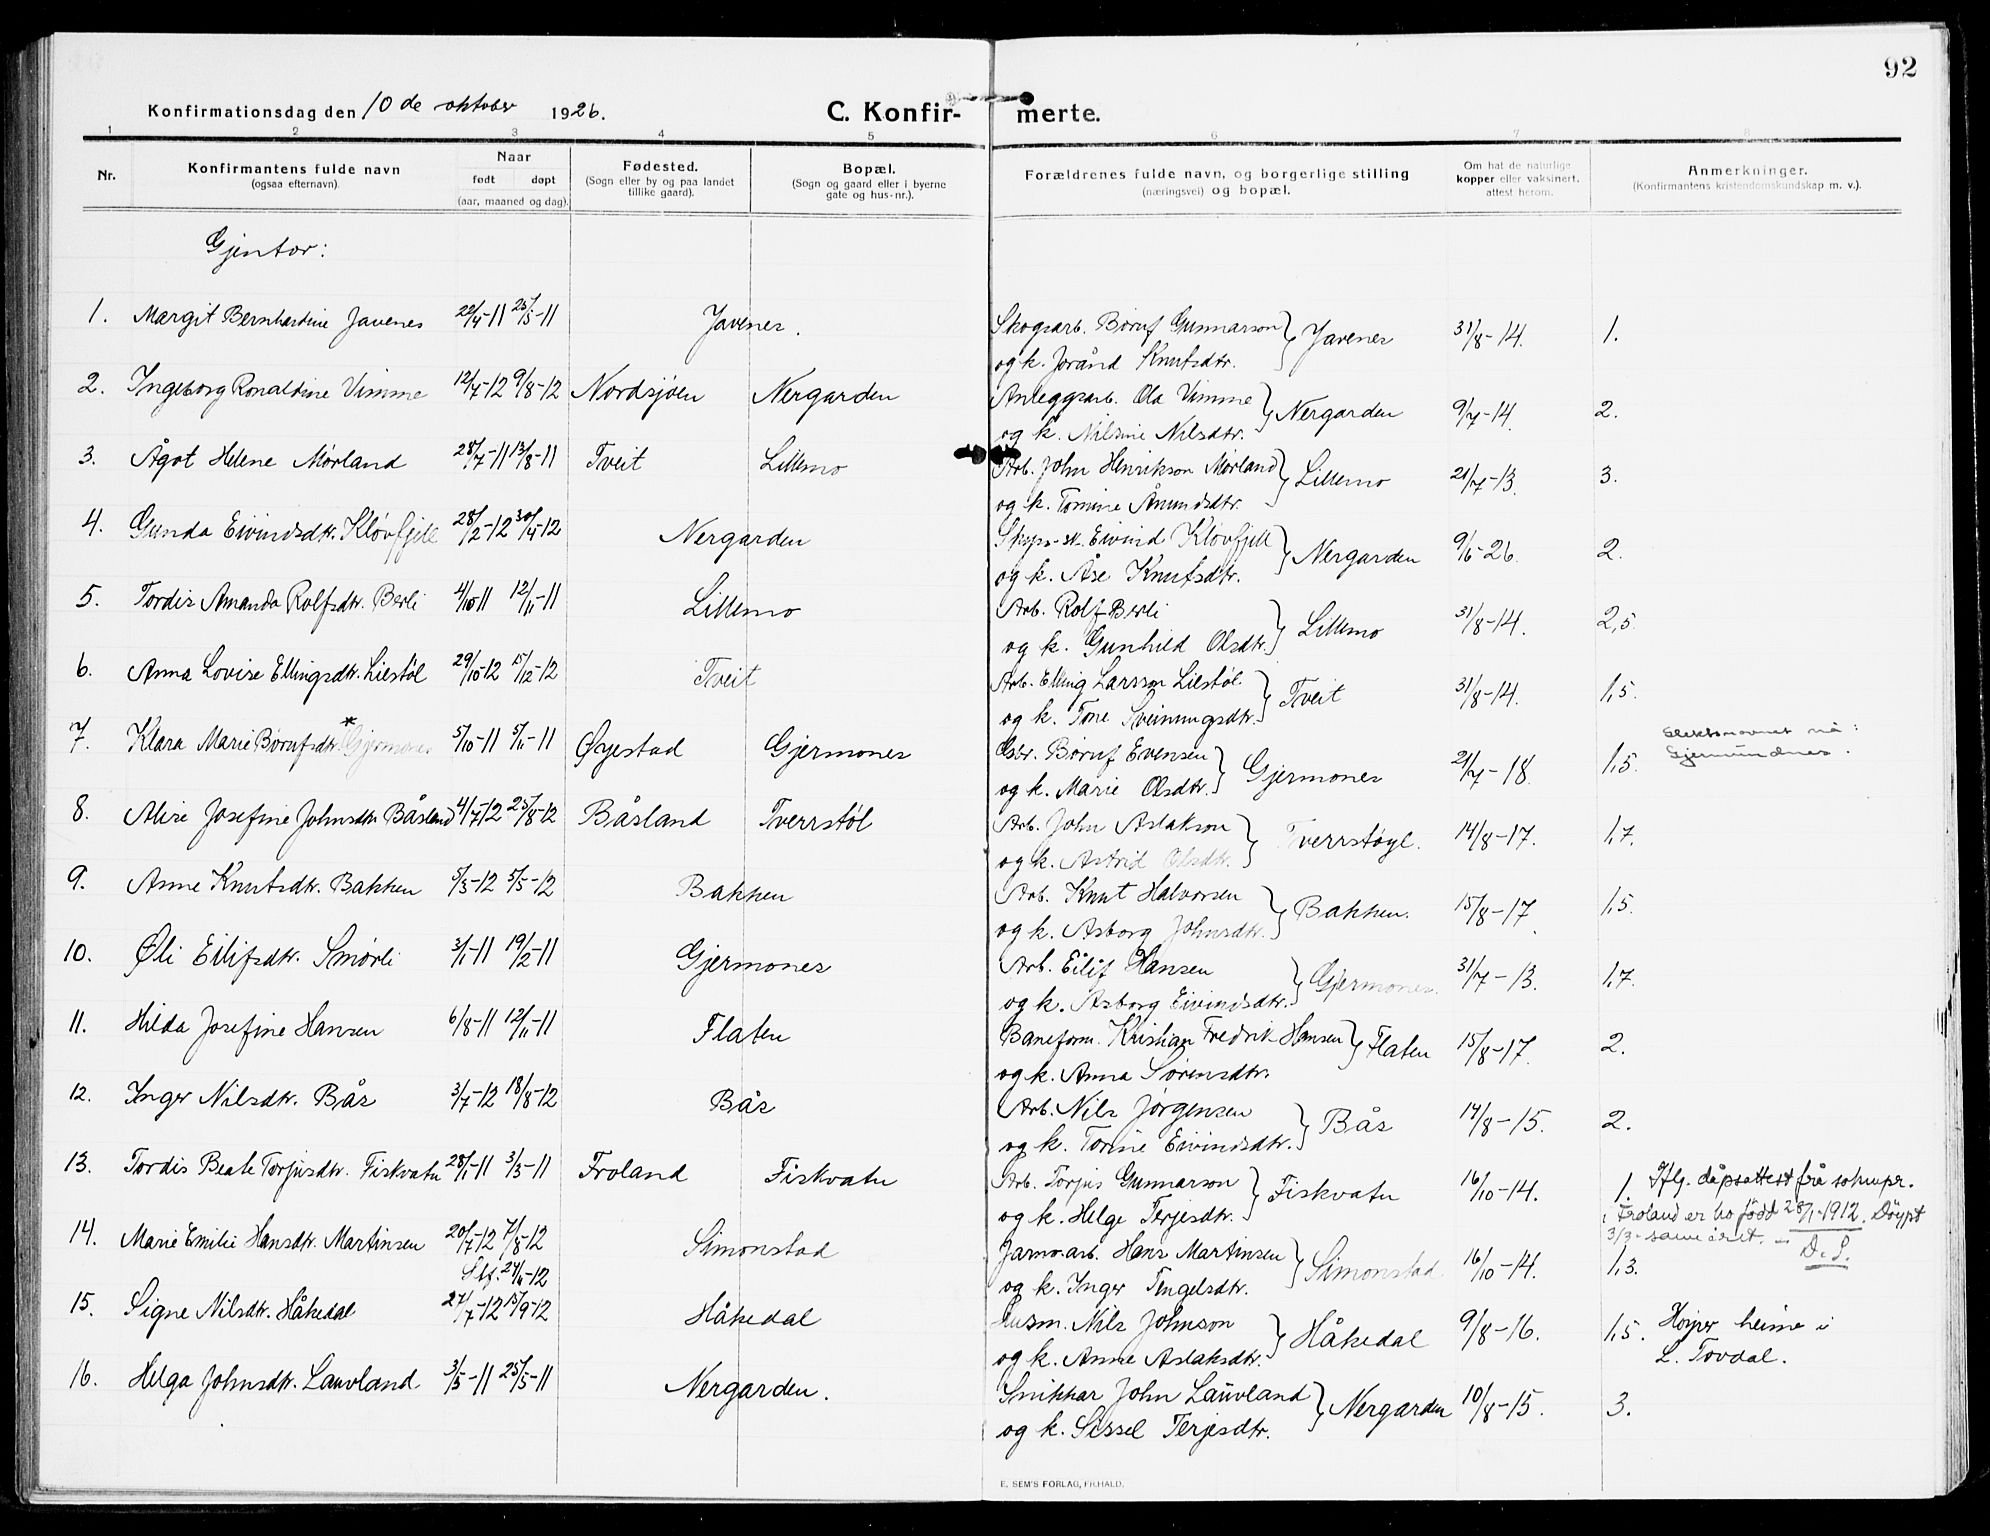 92
Konfirmationsdag den 10 de oktober 1926.
C. Konfir- merte.
1 2 3 4 5 6 7 8
Nr.
Konfirmantens fulde navn
(ogsaa efternavn).
Naar
født døpt
(aar, maaned og dag).
Fødested.
(Sogn eller by og paa landet
tillike gaard).
Bopæl.
(Sogn og gaard eller i byerne
gate og hus-nr.).
Forældrenes fulde navn, og borgerlige stilling
(næringsvei) og bopæl.
Om hat de naturlige
kopper eller vaksinert.
attest herom.
Anmerkninger.
(Konfirmantens kristendomskundskap m. v.).
Gjentor:
1. Margit Bernhardine Javenes 22/4-11 25/5-11 Javenes. Skogsarb. Børuf Gunnarson } Javenes 31/8-14. 1.
og k. Jorånd Knutsdtr.
2. Ingeborg Ronaldine Vimme 12/7-12 9/8-12 Nordsjøen Nergarden Anleggsarb. Ola Vimme } Nergarden 9/7-14. 2.
og k. Nilsine Nilsdtr.
3. Ågot Helene Mørland 28/7-11 13/8-11 Tveit Lillemo Arb. John Henrikson Mørland } Lillemo 21/7-13. 3.
og k. Tomine Åmundsdtr.
4. Gunda Eivindsdtr. Kløvfjell 28/2-12 30/4-12 Nergarden Eivind Kløvfjell } Nergarden 9/6-26. 2.
og k. Åse Knutsdtr.
5. Tordis Amanda Rolfsdtr. Berli 4/10-11 12/11-11 Lillemo Arb. Rolf Berli } Lillemo 31/8-14. 2,5.
og k. Gunhild Olsdtr.
6. Anna Lovise Ellingsdtr. Lilstøl 29/10-12 15/12-12 Tveit Arb. Elling Larsson Lilstøl } Tveit 31/8-14. 1,5.
og k. Tone Sveinungsdtr.
7. Klara Marie Børufsdtr. *Gjermones 5/10-11 5/11-11 Øyestad Gjermones Gbr. Børuf Evensen } Gjermones 21/7-18. 1,5. Slektsnavnet nå:
og k. Marie Olsdtr. Gjermundnes.
8. Alise Josefine Johnsdtr. Båsland 4/7-12 25/8-12 Båsland Tverrstøl Arb. John Aslakson } Tverrstøyl. 14/8-17. 1,7.
og k. Astrid Olsdtr.
9. Anne Knutsdtr. Bakken 5/3-12 5/5-12 Bakken Arb. Knut Halvorsen } Bakken. 15/8-17. 1,5.
og k. Asborg Johnsdtr.
10. Øli Eilifsdtr. Smørli 3/1-11 19/2-11 Gjermones Arb. Eilif Hansen } Gjermones. 31/7-13. 1,7.
og k. Asborg Eivindsdtr.
11. Hilda Josefine Hansen 6/8-11 12/11-11 Flaten Baneform. Kristian Fredrik Hansen } Flaten 15/8-17. 2.
og k. Anna Sørensdtr.
12. Inger Nilsdtr. Bås 3/7-12 18/8-12 Bås Arb. Nils Jørgensen } Bås 14/8-15. 2.
og k. Torine Eivindsdtr.
13. Tordis Beate Torjusdtr. Fiskvatn 28/1-11 3/3-11 Froland Fiskvatn Arb. Torjus Gunnarson } Fiskvatn 16/10-14. 1. Iflg. dåpsattest frå soknepr.
og k. Helge Terjesdtr. i Froland er ho født 28/1-1912. Døypt
3/3 same året. D. S.
14. Marie Emilie Hansdtr. Martinsen 20/7-12 7/8-12 Simonstad Jarnv.arb. Hans Martinsen } Simonstad. 16/10-14. 1,3.
og k. Inger Tengelsdtr.
15. Signe Nilsdtr. Håkedal 27/7-12 15/9-12 Håkedal Husm. Nils Johnson } Håkedal 9/8-16. 1,5. Høyrer heime i
og k. Anne Aslaksdtr. L. Tovdal.
16. Helga Johnsdtr. Lauvland 3/5-11 25/5-11 Nergarden. Snikkar John Lauvland } Nergarden 10/8-15. 3.
og k. Sissel Terjesdtr.
E. SEM'S FORLAG, FR.HALD.